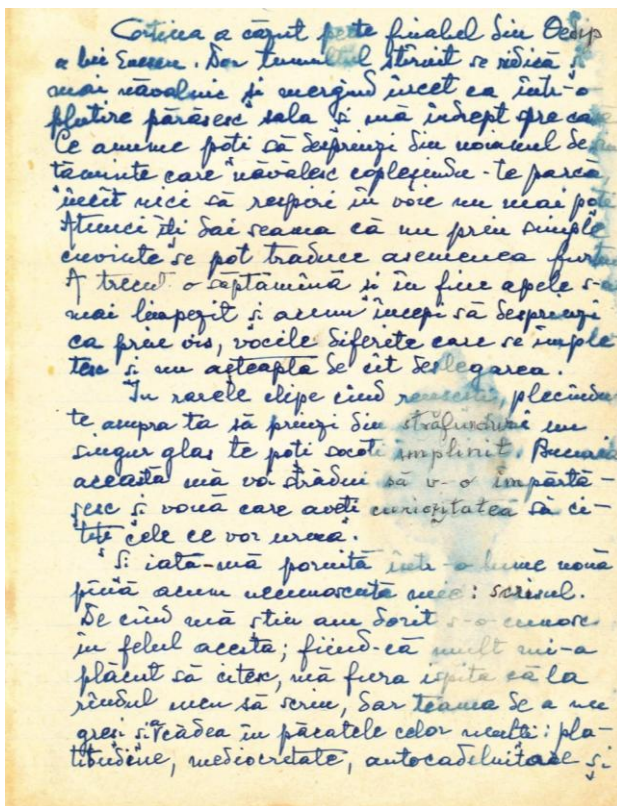 Cortina a căzut peste finalul din Oedip
a lui Enescu. Dar tumultul stîrnit se ridică și
mai năvalnic și mergînd încet ca într-o
plutire părăsesc sala și mă îndrept spre casă
Ce anume poți să desprinzi din noianul de sim
tăminte care năvălesc copleșindu-te parcă,
încît nici să respiri în voie nu mai poți
Atunci îți dai seama că nu prin simple
cuvinte se pot traduce asemenea furtuni
A trecut o săptămînă și în fine apele s-a
mai limpezit și acum începi să desprinzi
ca prin vis, vocile diferite care se împle
tesc și nu așteaptă de cît deslegarea.
In rarele clipe cînd reusesti, plecîndu
te asupra ta să prinzi din străfunduri un
singur glas te poti socoti împlinit. Bucuria
aceasta mă voi strădui să v-o împărtă-
șesc și vouă care aveți curiozitatea să ci-
tiți cele ce vor urma.
Si iată-mă pornită într-o lume nouă
pînă acum necunoscută mie: scrisul.
De cînd mă știu am dorit s-o cunosc
in felul acesta; fiind-că mult mi-a
plăcut să citesc, mă fura ispita că la
rîndul meu să scriu, dar teama de a nu
gresi și a cădea în păcatele celor mulți: pla-
titudine, mediocritate, și